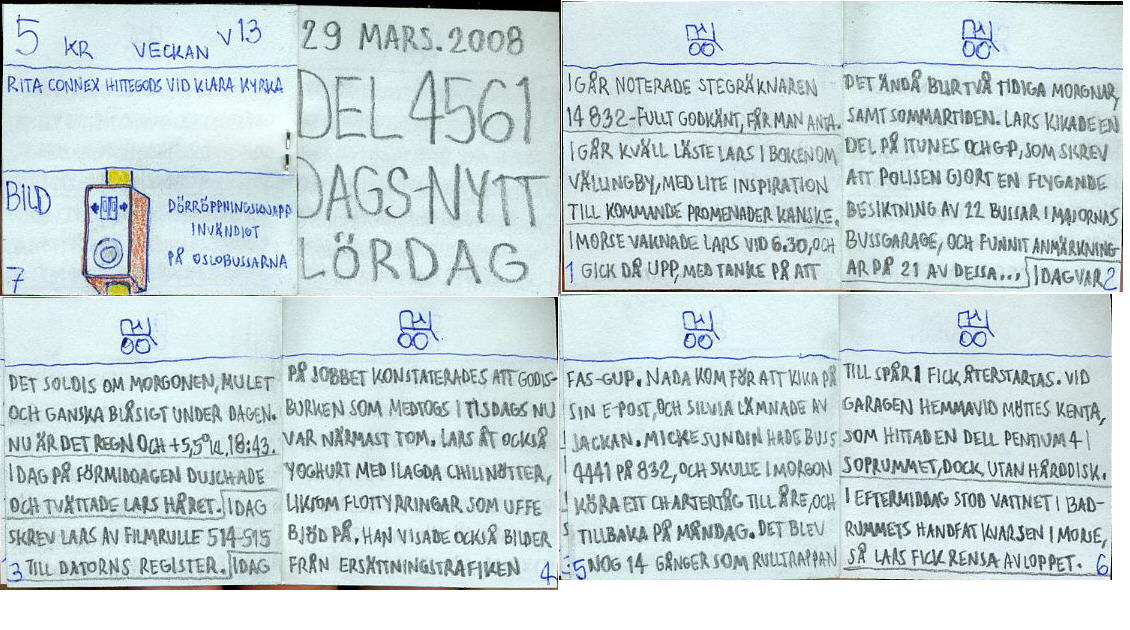 5 KR VECKAN V13
RITA CONNEX HITTEGODS VID KLARA KYRKA
BILD
DÖRRÖPPNINGSKNAPP
INVÄNDIGT
PÅ OSLOBUSSARNA
7
29 MARS.2008
DEL 4561
DAGS-NYTT
LÖRDAG
I GÅR NOTERADE STEGRÄKNAREN
14 832-FULLT GODKÄNT, FÅR MAN ANTA.
I GÅR KVÄLL LÄSTE LARS I BOKEN OM
VÄLLINGBY, MED LITE INSPIRATION
TILL KOMMANDE PROMENADER KANSKE.
I MORSE VAKNADE LARS VID 6.30, OCH
1 GICK DÅ UPP, MED TANKE PÅ ATT
DET ÄNDÅ BLIR TVÅ TIDIGA MORGNAR,
SAMT SOMMARTIDEN. LARS KIKADE EN
DEL PÅ ITUNES OCH GP, SOM SKREV
ATT POLISEN GJORT EN FLYGANDE
BESIKTNING AV 22 BUSSAR I MAJORNAS
BUSSGARAGE, OCH FUNNIT ANMÄRKNING-
AR PÅ 21 AV DESSA... I DAG VAR 2
DET SOLDIS OM MORGONEN, MULET
OCH GANSKA BLÅSIGT UNDER DAGEN.
NU ÄR DET REGN OCH +5,5° KL. 18:43.
I DAG PÅ FÖRMIDDAGEN DUSCHADE
OCH TVÄTTADE LARS HÅRET. I DAG
SKREV LARS AV FILMRULLE 514-515
3 TILL DATORNS REGISTER. I DAG
PÅ JOBBET KONSTATERADES ATT GODIS-
BURKEN SOM MEDTOGS I TISDAGS NU
VAR NÄRMAST TOM. LARS ÅT OCKSÅ
YOGHURT MED ILAGDA CHILINÖTTER,
LIKSOM FLOTTYRRINGAR SOM UFFE
BJÖD PÅ. HAN VISADE OCKSÅ BILDER
FRÅN ERSÄTTNINGSTRAFIKEN 4
FAS-GUP. NADA KOM FÖR ATT KIKA PÅ
SIN E-POST, OCH SILVIA LÄMNADE AV
JACKAN. MICKE SUNDIN HADE BUSS
4441 PÅ 832, OCH SKULLE I MORGON
KÖRA ETT CHARTERTÅG TILL ÅRE, OCH
TILLBAKA PÅ MÅNDAG. DET BLEV
5 NOG 14 GÅNGER SOM RULLTRAPPAN
TILL SPÅR 1 FICK ÅTERSTARTAS. VID
GARAGEN HEMMAVID MÖTTES KENTA,
SOM HITTAD EN DELL PENTIUM 4 I
SOPRUMMET, DOCK UTAN HÅRDDISK.
I EFTERMIDDAG STOD VATTNET I BAD-
RUMMETS HANDFAT KVAR SEN I MORSE,
SÅ LARS FICK RENSA AVLOPPET. 6